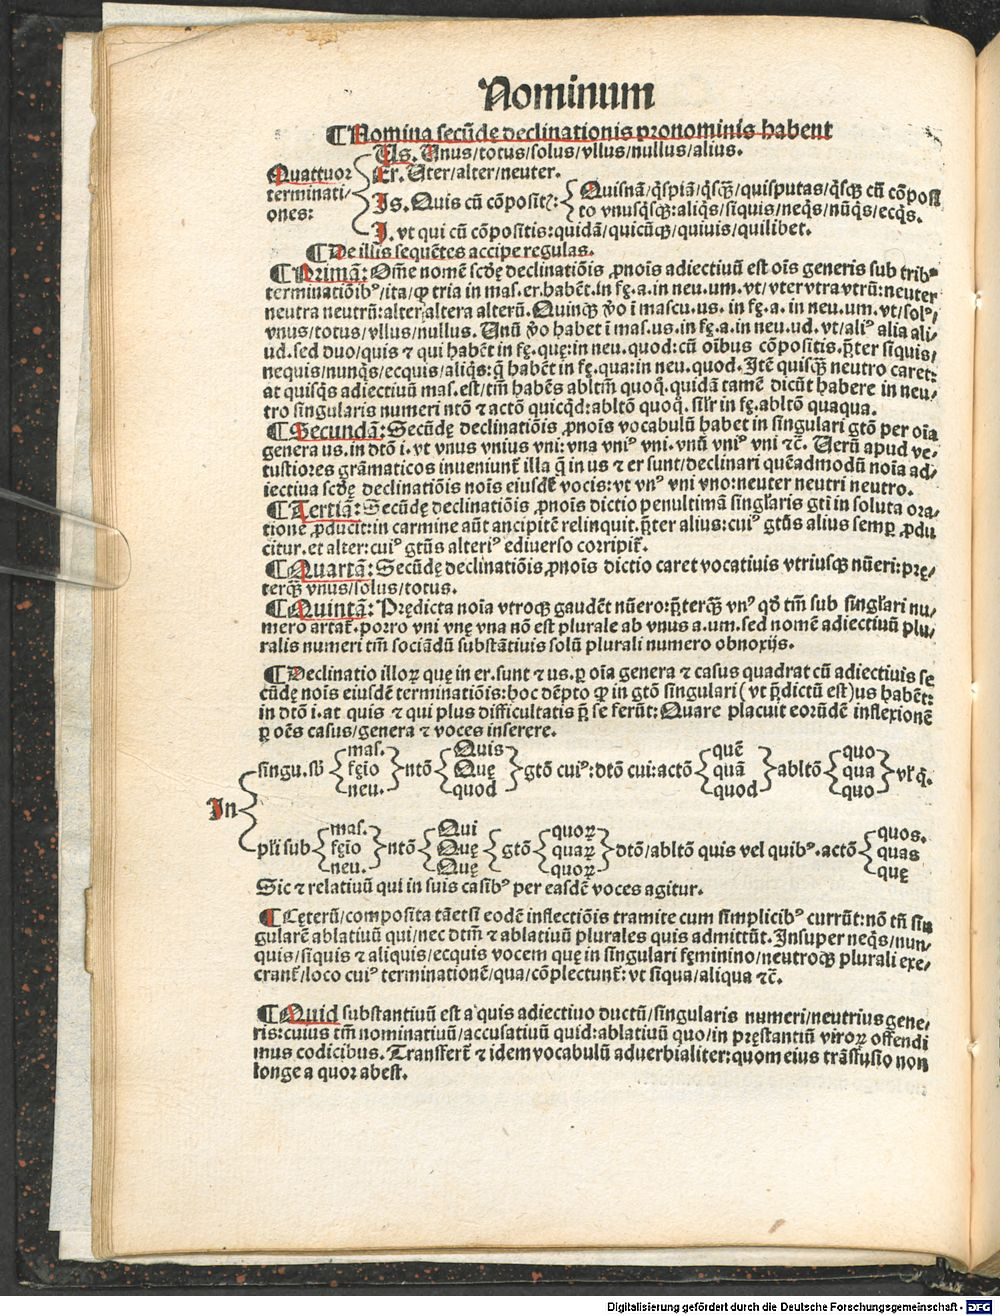 Nominum
¶Nomina secūdę declinationis pronominis habent
Us. Unus/totus/solus/vllus/nullus/alius.
Quattuor terminati/ones:
Er. Uter/alter/neuter.
Is. Quis cū cōpositꝭ: Quisnā/qͥspiā/qͥsqꝫ/quisputas/qͥsqꝫ cū cōposi
to vnusqͥsqꝫ:aliqͥs/siquis/neqͥs/nūqͥs/ecqͥs.
I. vt qui cū cōpositis:quidā/quicūqꝫ/quiuis/quilibet.
¶De illis sequētes accipe regulas.
¶Primā: Om̄e nomē scd̄ę declinatiōis ꝓnoīs adiectiuū est oīs generis sub tribꝰ
terminatiōibꝰ/ita/ꝙ tria in mas.er.habēt.in fę.a.in neu.um.vt/vter vtra vtrū:neuter
neutra neutrū:alter altera alterū.Quinqꝫ ꝟo ī mascu.us.in fę.a.in neu.um.vt/solꝰ/
vnus/totus/vllus/nullus. Unū ꝟo habet ī mas.us.in fę.a.in neu.ud.vt/aliꝰ alia ali/
ud.sed duo/quis ⁊ qui habēt in fę.quę:in neu.quod:cū oībus cōpositis.p̄ter siquis/
nequis/nunqͥs/ecquis/aliqͥs:q̄ habēt in fę.qua:in neu.quod.Itē quisqꝫ neutro caret:
at quisqͥs adiectiuū mas.est/tm̄ habēs abltm̄ quoqͦ.quidā tamē dicūt habere in neu/
tro singularis numeri ntō ⁊ actō quicqͥd:abltō quoqͦ.silr̄ in fę.abltō quaqua.
¶Secundā: Secūdę declinatiōis ꝓnoīs vocabulū habet in singulari gtō per oīa
genera us.in dtō i.vt vnus vnius vni:vna vniꝰ vni.vnū vniꝰ vni ⁊c̄. Uerū apud ve/
tustiores grāmaticos inueniunt̄ illa q̄ in us ⁊ er sunt/declinari quēadmodū noīa ad/
iectiua scd̄ę declinatiōis noīs eiusdē vocis:vt vnꝰ vni vno:neuter neutri neutro.
¶Tertiā: Secūdę declinatiōis ꝓnoīs dictio penultimā singl̄aris gtī in soluta ora/
tione ꝓducit:in carmine aūt ancipitē relinquit.p̄ter alius:cuiꝰ gtūs alius semꝑ ꝓdu
citur.et alter:cuiꝰ gtūs alteriꝰ ediuerso corripit̄.
¶Quartā: Secūdę declinatiōis ꝓnoīs dictio caret vocatiuis vtriusqꝫ nūeri:prę/
terqꝫ vnus/solus/totus.
¶Quintā: Prędicta noīa vtroqꝫ gaudēt nūero:p̄terqꝫ vnꝰ qd̄ tm̄ sub singl̄ari nu/
mero artat̄.porro vni vnę vna nō est plurale ab vnus a.um.sed nomē adiectiuū plu/
ralis numeri tm̄ sociādū substātiuis solū plurali numero obnoxijs.
¶Declinatio illoꝝ quę in er.sunt ⁊ us.ꝑ oīa genera ⁊ casus quadrat cū adiectiuis se
cūdę noīs eiusdē terminatiōis:hoc dēpto ꝙ in gtō singulari(vt p̄dictū est)us habēt:
in dtō i.at quis ⁊ qui plus difficultatis p̄ se ferūt:Quare placuit eorūdē inflexionē
ꝑ oēs casus/genera ⁊ voces inserere.
In
singu.sb̄ mas. fęīo neu. ntō Quis Quę quod gtō cuiꝰ:dtō cui:actō quē quā quod abltō quo qua quo vl̄ qͥ.
pl̄i sub mas. fęīo neu. ntō Qui Quę Quę gtō quoꝝ quaꝝ quoꝝ dtō/abltō quis vel quibꝰ.actō quos. quas quę
Sic ⁊ relatiuū qui in suis casibꝰ per easdē voces agitur.
¶Cęterū/composita tāetsi eodē inflectiōis tramite cum simplicibꝰ currūt:nō tn̄ sin
gularē ablatiuū qui/nec dtm̄ ⁊ ablatiuū plurales quis admittūt.Insuper neqͥs/nun/
quis/siquis ⁊ aliquis/ecquis vocem quę in singulari fęminino/neutroqꝫ plurali exe/
crant̄/loco cuiꝰ terminationē/qua/cōplectunt̄:vt siqua/aliqua ⁊c̄.
¶Quid substantiuū est a quis adiectiuo ductū/singularis numeri/neutrius gene/
ris:cuius tm̄ nominatiuū/accusatiuū quid:ablatiuū quo/in pręstantiū viroꝝ offendi
mus codicibus. Transfert̄ ⁊ idem vocabulū aduerbialiter:quom eius trāsfusio non
longe a quor abest.
Digitalisierung gefördert durch die Deutsche Forschungsgemeinschaft - DFG